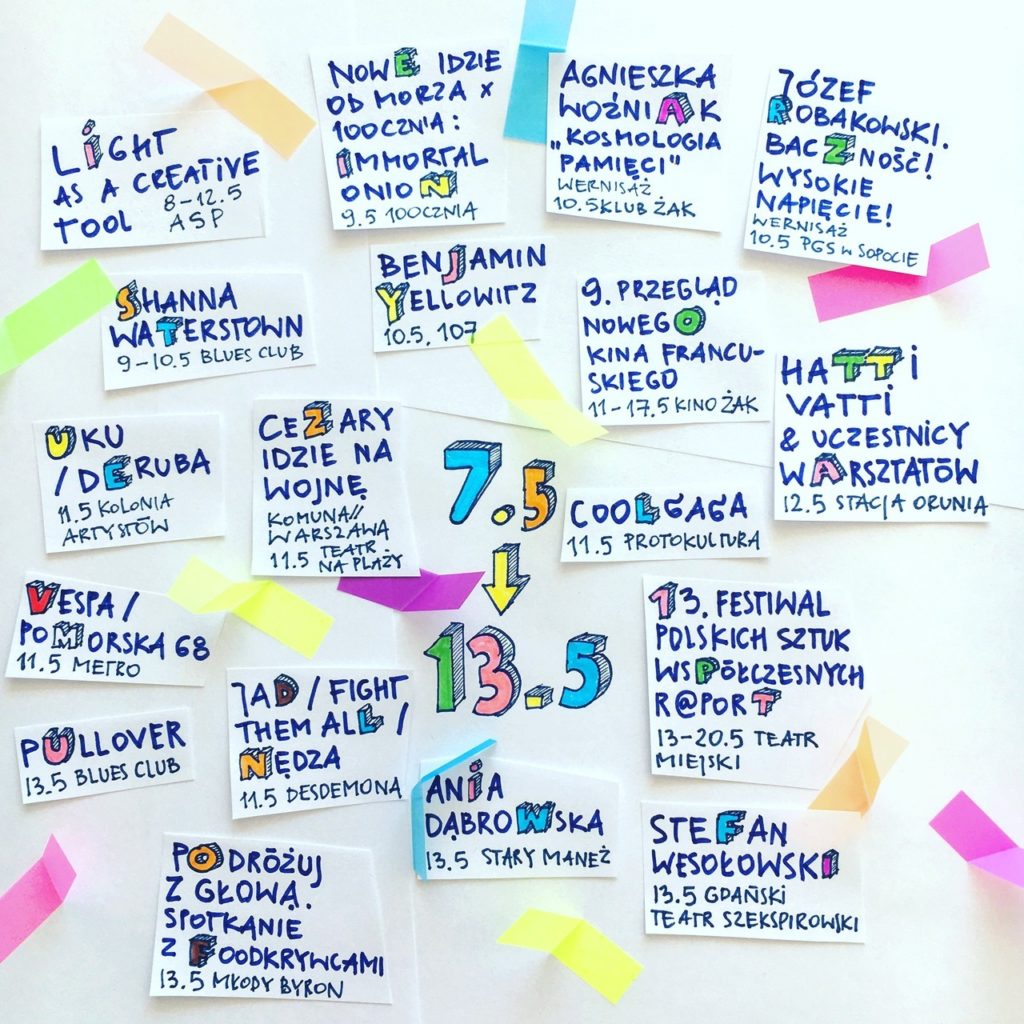 LiGHT
AS A CREATIVE
TOOL 8-12.5
ASP
NOWE IDZIE
OD MORZA x
100CZNIA:
IMMORTAL
ONION
9.5 100CZNIA
AGNIESZKA
WOŹNIAK
„KOSMOLOGIA
PAMIĘCI"
WERNISAŻ
10.5 KLUB ŻAK
JÓZEF
ROBAKOWSKI.
BACZNOŚĆ!
WYSOKIE
NAPIĘCIE!
WERNISAŻ
10.5 PGS w SOPOCIE
SHANNA
WATERSTOWN
9-10.5 BLUES CLUB
BENJAMIN
YELLOWITZ
10.5, 107
9. PRZEGLĄD
NOWEGO
KINA FRANCU-
SKIEGO
11-17.5 KINO ŻAK
HATTi
VATTI
& UCZESTNICY
WARSZTATÓW
12.5 STACJA ORUNIA
UKU
/DERUBA
11.5 KOLONIA
ARTYSTÓW
CEZARY
IDZIE NA
WOJNĘ
KOMUNA//
WARSZAWA
11.5 TEATR
NA PLAŻY
7.5
13.5
COOLGAGA
11.5 PROTOKULTURA
VESPA/
POMORSKA 68
11.5 METRO
13. FESTIWAL
POLSKICH SZTUK
WSPÓŁCZESNYCH
R@PORT
13-20.5 TEATR
MIEJSKI
PULLOVER
13.5 BLUES CLUB
JAD / FIGHT
THEM ALL /
NĘDZA
11.5 DESDEMONA
ANiA
DĄBROWSKA
13.5 STARY MANEŻ
STEFAN
WESOŁOWSKI
13.5 GDAŃSKI
TEATR SZEKSPIROWSKI
PODRÓŻUJ
Z GŁOWĄ.
SPOTKANIE
Z FOODKRYWCAMI
13.5 MŁODY BYRON